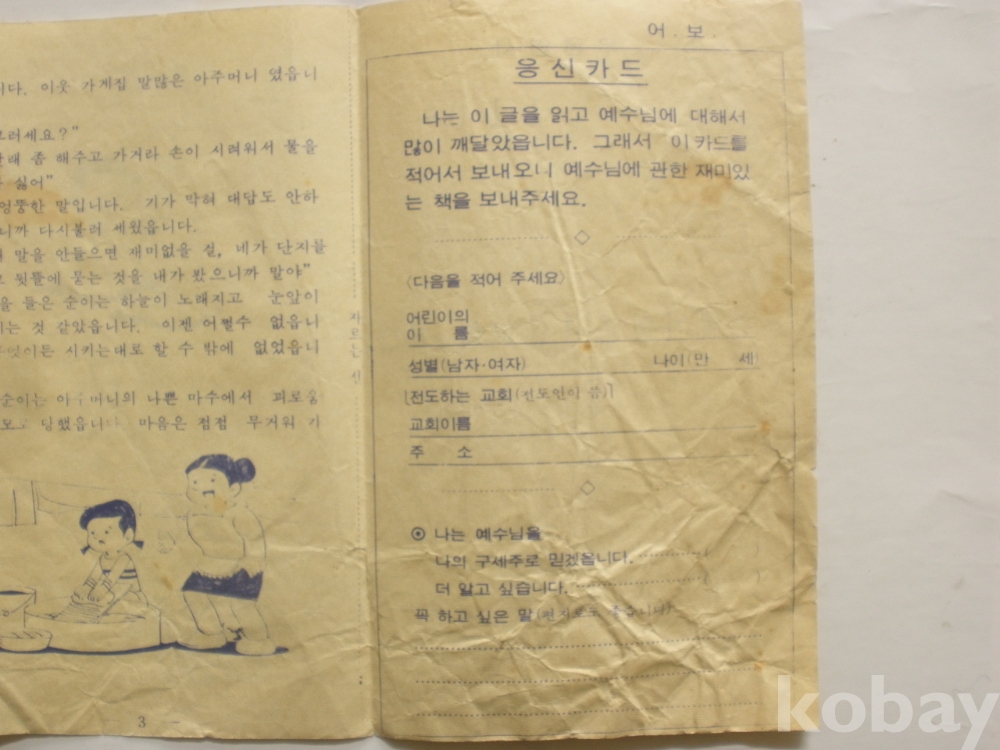 니다. 이웃 가게집 말많은 아주머니 였읍니
러세요?"
래 좀 해주고 가거라 손이 시려워서 물을
싫어"
엉뚱한 말입니다. 기가 막혀 대답도 안하
니까 다시불러 세웠읍니다.
말을 안들으면 재미없을 걸, 네가 단지를
뒷뜰에 묻는 것을 내가 봤으니까 말야"
을 들은 순이는 하늘이 노래지고 눈앞이
는 것 같았읍니다. 이젠 어쩔수 없읍니
엇이든 시키는대로 할 수 밖에 없었읍니
순이는 아주머니의 나쁜 마수에서 괴로움
당했읍니다 마음은 점점 무거워 가
3
자르는 선
어. 보.
응신카드
나는 이 글을 읽고 예수님에 대해서
많이 깨달았읍니다. 그래서 이카드를
적어서 보내오니 예수님에 관한 재미있
는 책을 보내주세요.
〈다음을 적어 주세요〉
어린이의
이 름
성별(남자·여자) 나이(만 세)
[전도하는 교회(전도인이 씀)]
교회이름
주 소
⊙ 나는 예수님을
나의 구세주로 믿겠읍니다.
더 알고 싶습니다. ( )
꼭 하고 싶은 말(편지로도 좋습니다)
kobay